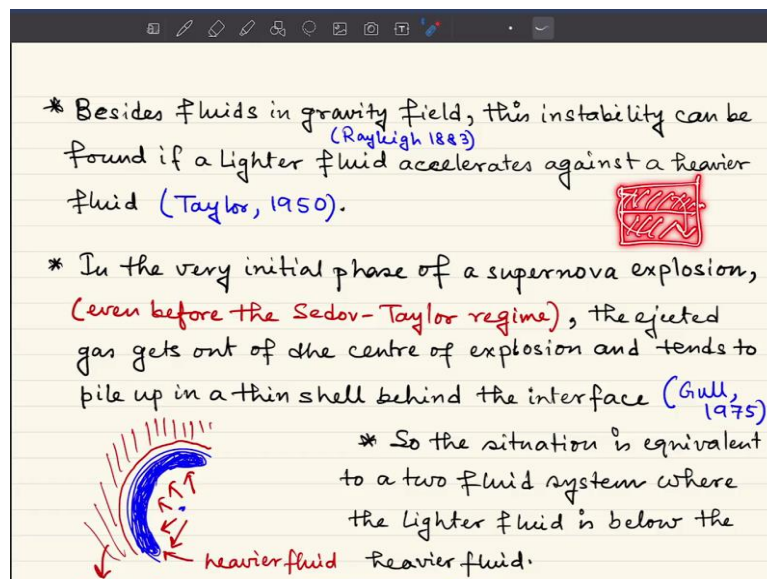 * Besides fluids in gravity field, this instability can be
(Rayleigh 1883)
found if a lighter fluid accelerates against a heavier
fluid (Taylor, 1950).
* In the very initial phase of a supernova explosion,
(even before the Sedov-Taylor regime), the ejected
gas gets out of the centre of explosion and tends to
pile up in a thin shell behind the interface (Gull,
1975)
* So the situation is equivalent
to a two fluid system where
the lighter fluid is below the
heavier fluid.
heavier fluid